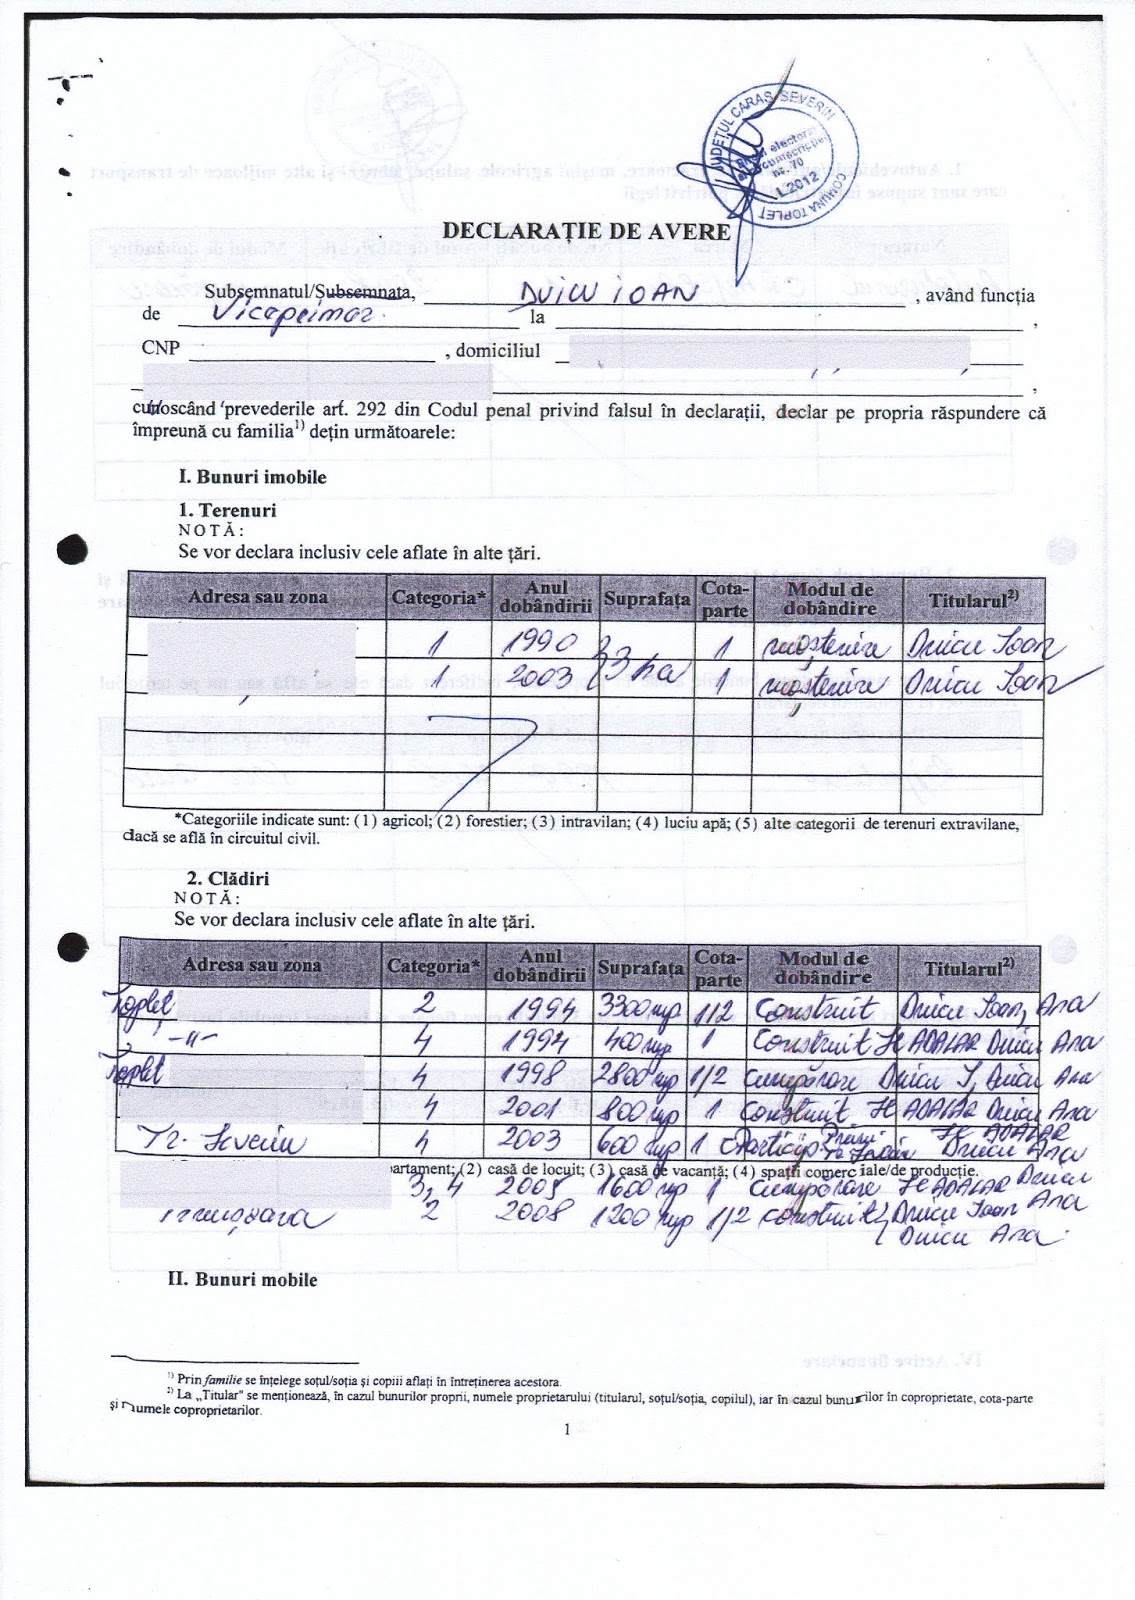 JUDEȚUL CARAȘ SEVERIN
COMUNA TOPLEȚ
Biroul electoral
al circumscripției
nr. 70
2012
DECLARAȚIE DE AVERE
Subsemnatul/Subsemnata, DUICU IOAN , având funcția
de Viceprimar la ,
CNP , domiciliul
,
cunoscând prevederile art. 292 din Codul penal privind falsul în declarații, declar pe propria răspundere că
împreună cu familia1) dețin următoarele:
I. Bunuri imobile
1. Terenuri
NOTĂ:
Se vor declara inclusiv cele aflate în alte țări.
Adresa sau zona Categoria* Anul dobândirii Suprafața Cota-parte Modul de dobândire Titularul2)
1 1990 1 moștenire Duicu Ioan
3 ha
1 2003 1 moștenire Duicu Ioan
*Categoriile indicate sunt: (1) agricol; (2) forestier; (3) intravilan; (4) luciu apă; (5) alte categorii de terenuri extravilane,
dacă se află în circuitul civil.
2. Clădiri
NOTĂ:
Se vor declara inclusiv cele aflate în alte țări.
Adresa sau zona Categoria* Anul dobândirii Suprafața Cota-parte Modul de dobândire Titularul2)
Topleț 2 1994 3300 mp 1/2 Construit Duicu Ioan, Ana
-"- 4 1994 400 mp 1 Construit ADALAR Duicu Ana
Topleț 4 1998 2800 mp 1/2 Cumpărare Duicu I, Duicu Ana
4 2001 800 mp 1 Construit ADALAR Duicu Ana
Tr. Severin 4 2003 600 mp 1 ADALAR Duicu Ana
partament; (2) casă de locuit; (3) casă de vacanță; (4) spații comerciale/de producție.
3, 4 2005 1600 mp 1 Cumpărare ADALAR Duicu Ana
2 2008 1200 mp 1/2 construit Duicu Ioan
Duicu Ana
II. Bunuri mobile
1) Prin familie se înțelege soțul/soția și copiii aflați în întreținerea acestora.
2) La „Titular" se menționează, în cazul bunurilor proprii, numele proprietarului (titularul, soțul/soția, copilul), iar în cazul bunurilor în coproprietate, cota-parte
și numele coproprietarilor.
1